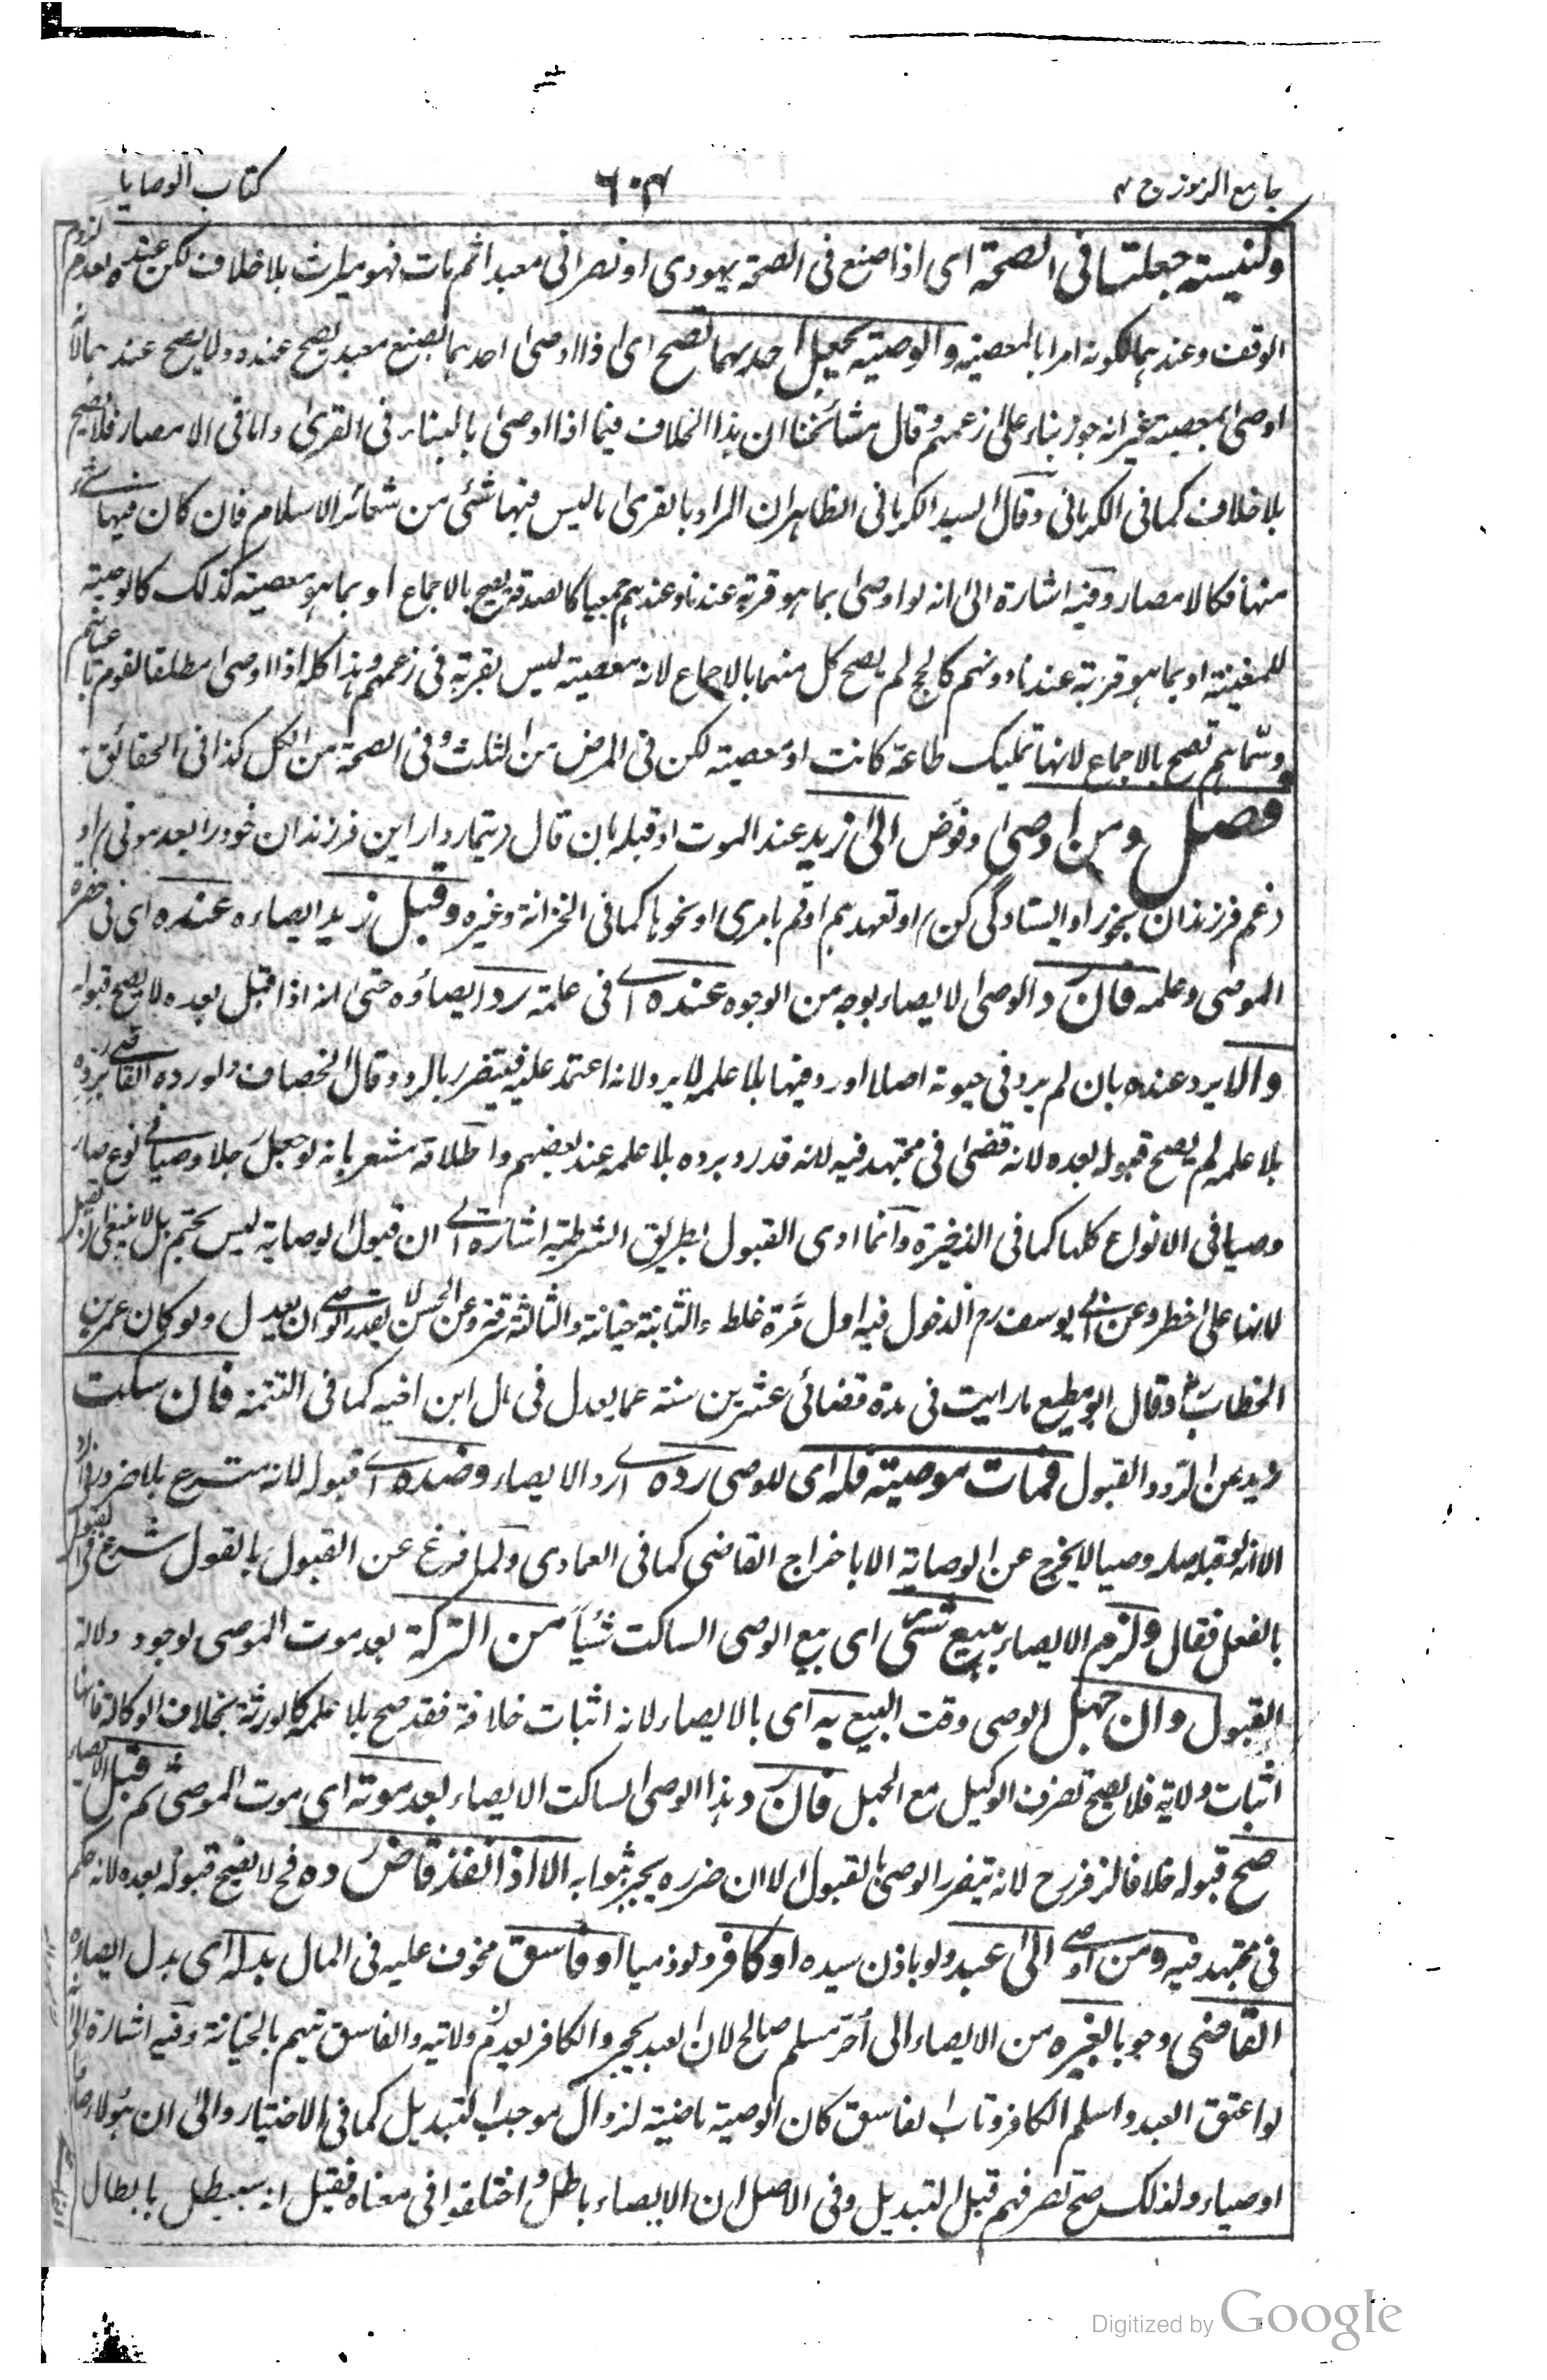 جامع الرموز ج ٤
٦٠٤
كتاب الوصايا
وكنيسة جعلتا فى الصحة اى اذا صنع فى الصحة يهودى او نصرانى معبدا ثم مات فهو ميراث بلا خلاف لكن عنده لعدم لزوم
الوقف وعندهما لكونه امرا بالمعصية والوصية بجعل احدهما تصح اى اذا اوصى احدهما بصنع معبد يصح عنده ولا يصح عندهما لانه
اوصى بمعصية غير انه جوز بناء على زعمهم وقال مشائخنا ان هذا الخلاف فيما اذا اوصى بالبناء فى القرى واما فى الامصار فلا يصح
بلا خلاف كما فى الكرمانى وقال السيد الكرمانى الظاهر ان المراد بالقرى ما ليس فيها شئى من شعائر الاسلام فان كان فيها شئ
منها فكالامصار وفيه اشارة الى انه لو اوصى بما هو قربة عندنا وعندهم جميعا كالصدقة يصح بالاجماع او بما هو معصية كذلك كالوصية
للمغنية او بما هو قربة عندنا دونهم كالحج لم يصح كل منهما بالاجماع لانه معصية ليس بقربة فى زعمهم وهذا كله اذا اوصى مطلقا لقوم باعيانهم
وسماهم تصح بالاجماع لانها تمليك طاعة كانت او معصية لكن فى المرض من الثلث وفى الصحة من الكل كذا فى الحقائق
فصل ومن اوصى وفوض الى زيد عند الموت او قبله بان قال (تيمار دار اين فرزندان خود را بعد موتى) او
(غم فرزندان بخور او ايستادگى كن) او تعهدهم او قم بامرى او نحوها كما فى الخزانة وغيره وقبل زيد ايصاءه عنده اى فى حضرة
الموصى وعلمه فان رد الوصى الايصاء بوجه من الوجوه عنده اى فى علمه رد ايصاؤه حتى انه اذا قبل بعده لا يصح قبوله
والا يرد عنده بان لم يرد فى حيوته اصلا او رد فيها بلا علمه لا يرد لانه اعتمد عليه فيتضرر بالرد وقال الخصاف ولو رده القاضى برده
بلا علمه لم يصح قبوله بعده لانه قضى فى مجتهد فيه لانه قد رد برده بلا علمه عند بعضهم واطلاقه مشعر بانه لو جعل رجلا وصيا فى نوع صار
وصيا فى الانواع كلها كما فى الذخيرة وانما ادى القبول بطريق الشرطية اشارة الى ان قبول الوصاية ليس بحتم بل لا ينبغى ان يقبل
لانها على خطر وعن ابى يوسف رح الدخول فيه اول مرة غلط والثانية خيانة والثالثة سرقة وعن الحسن لا يقدر الوصى ان يعدل ولو كان عمر بن
الخطاب رض وقال ابو مطيع ما رايت فى مدة قضائى عشرين سنة عما يعدل فى مال ابن اخيه كما فى التتمة فان سكت
زيد عن الرد والقبول فمات موصيه فله اى للوصى رده اى رد الايصاء وضده اى قبوله لانه متبرع بلا ضرورة
الا انه لو قبله صار وصيا لا يخرج عن الوصاية الا باخراج القاضى كما فى العمادى ولما فرغ عن القبول بالقول شرع فى القبول
بالفعل فقال ولزم الايصاء ببيع شئى اى بيع الوصى الساكت شيئا من التركة بعد موت الموصى لوجود دلالة
القبول وان جهل الوصى وقت البيع به اى بالايصاء لانه اثبات خلافة فقد صح بلا علمه كالورثة بخلاف الوكالة فانها
اثبات ولاية فلا يصح تصرف الوكيل مع الجهل فان رد هذا الوصى الساكت الايصاء بعد موته اى موت الموصى ثم قبل الايصاء
صح قبوله خلافا لزفر رح لانه يتضرر الوصى بالقبول الا ان ضرره يجبر بثوابه الا اذا نفذ قاض رده فح لا يصح قبوله بعده لانه حكم
فى مجتهد فيه ومن اوصى الى عبد ولو باذن سيده او كافر ولو ذميا او فاسق مخوف عليه فى المال بدله اى بدل ايصاؤه
القاضى وجوبا بغيره من الايصاء الى آخر مسلم صالح لان العبد يحجر والكافر يعدم ولايته والفاسق يتهم بالخيانة وفيه اشارة الى انه
لو اعتق العبد واسلم الكافر وتاب الفاسق كان الوصية ماضية لزوال موجب التبديل كما فى الاختيار والى ان هؤلاء صاروا
اوصياء ولذلك صح تصرفهم قبل التبديل وفى الاصل ان الايصاء باطل واختلفوا فى معناه فقيل انه سيبطل بابطال
Digitized by Google